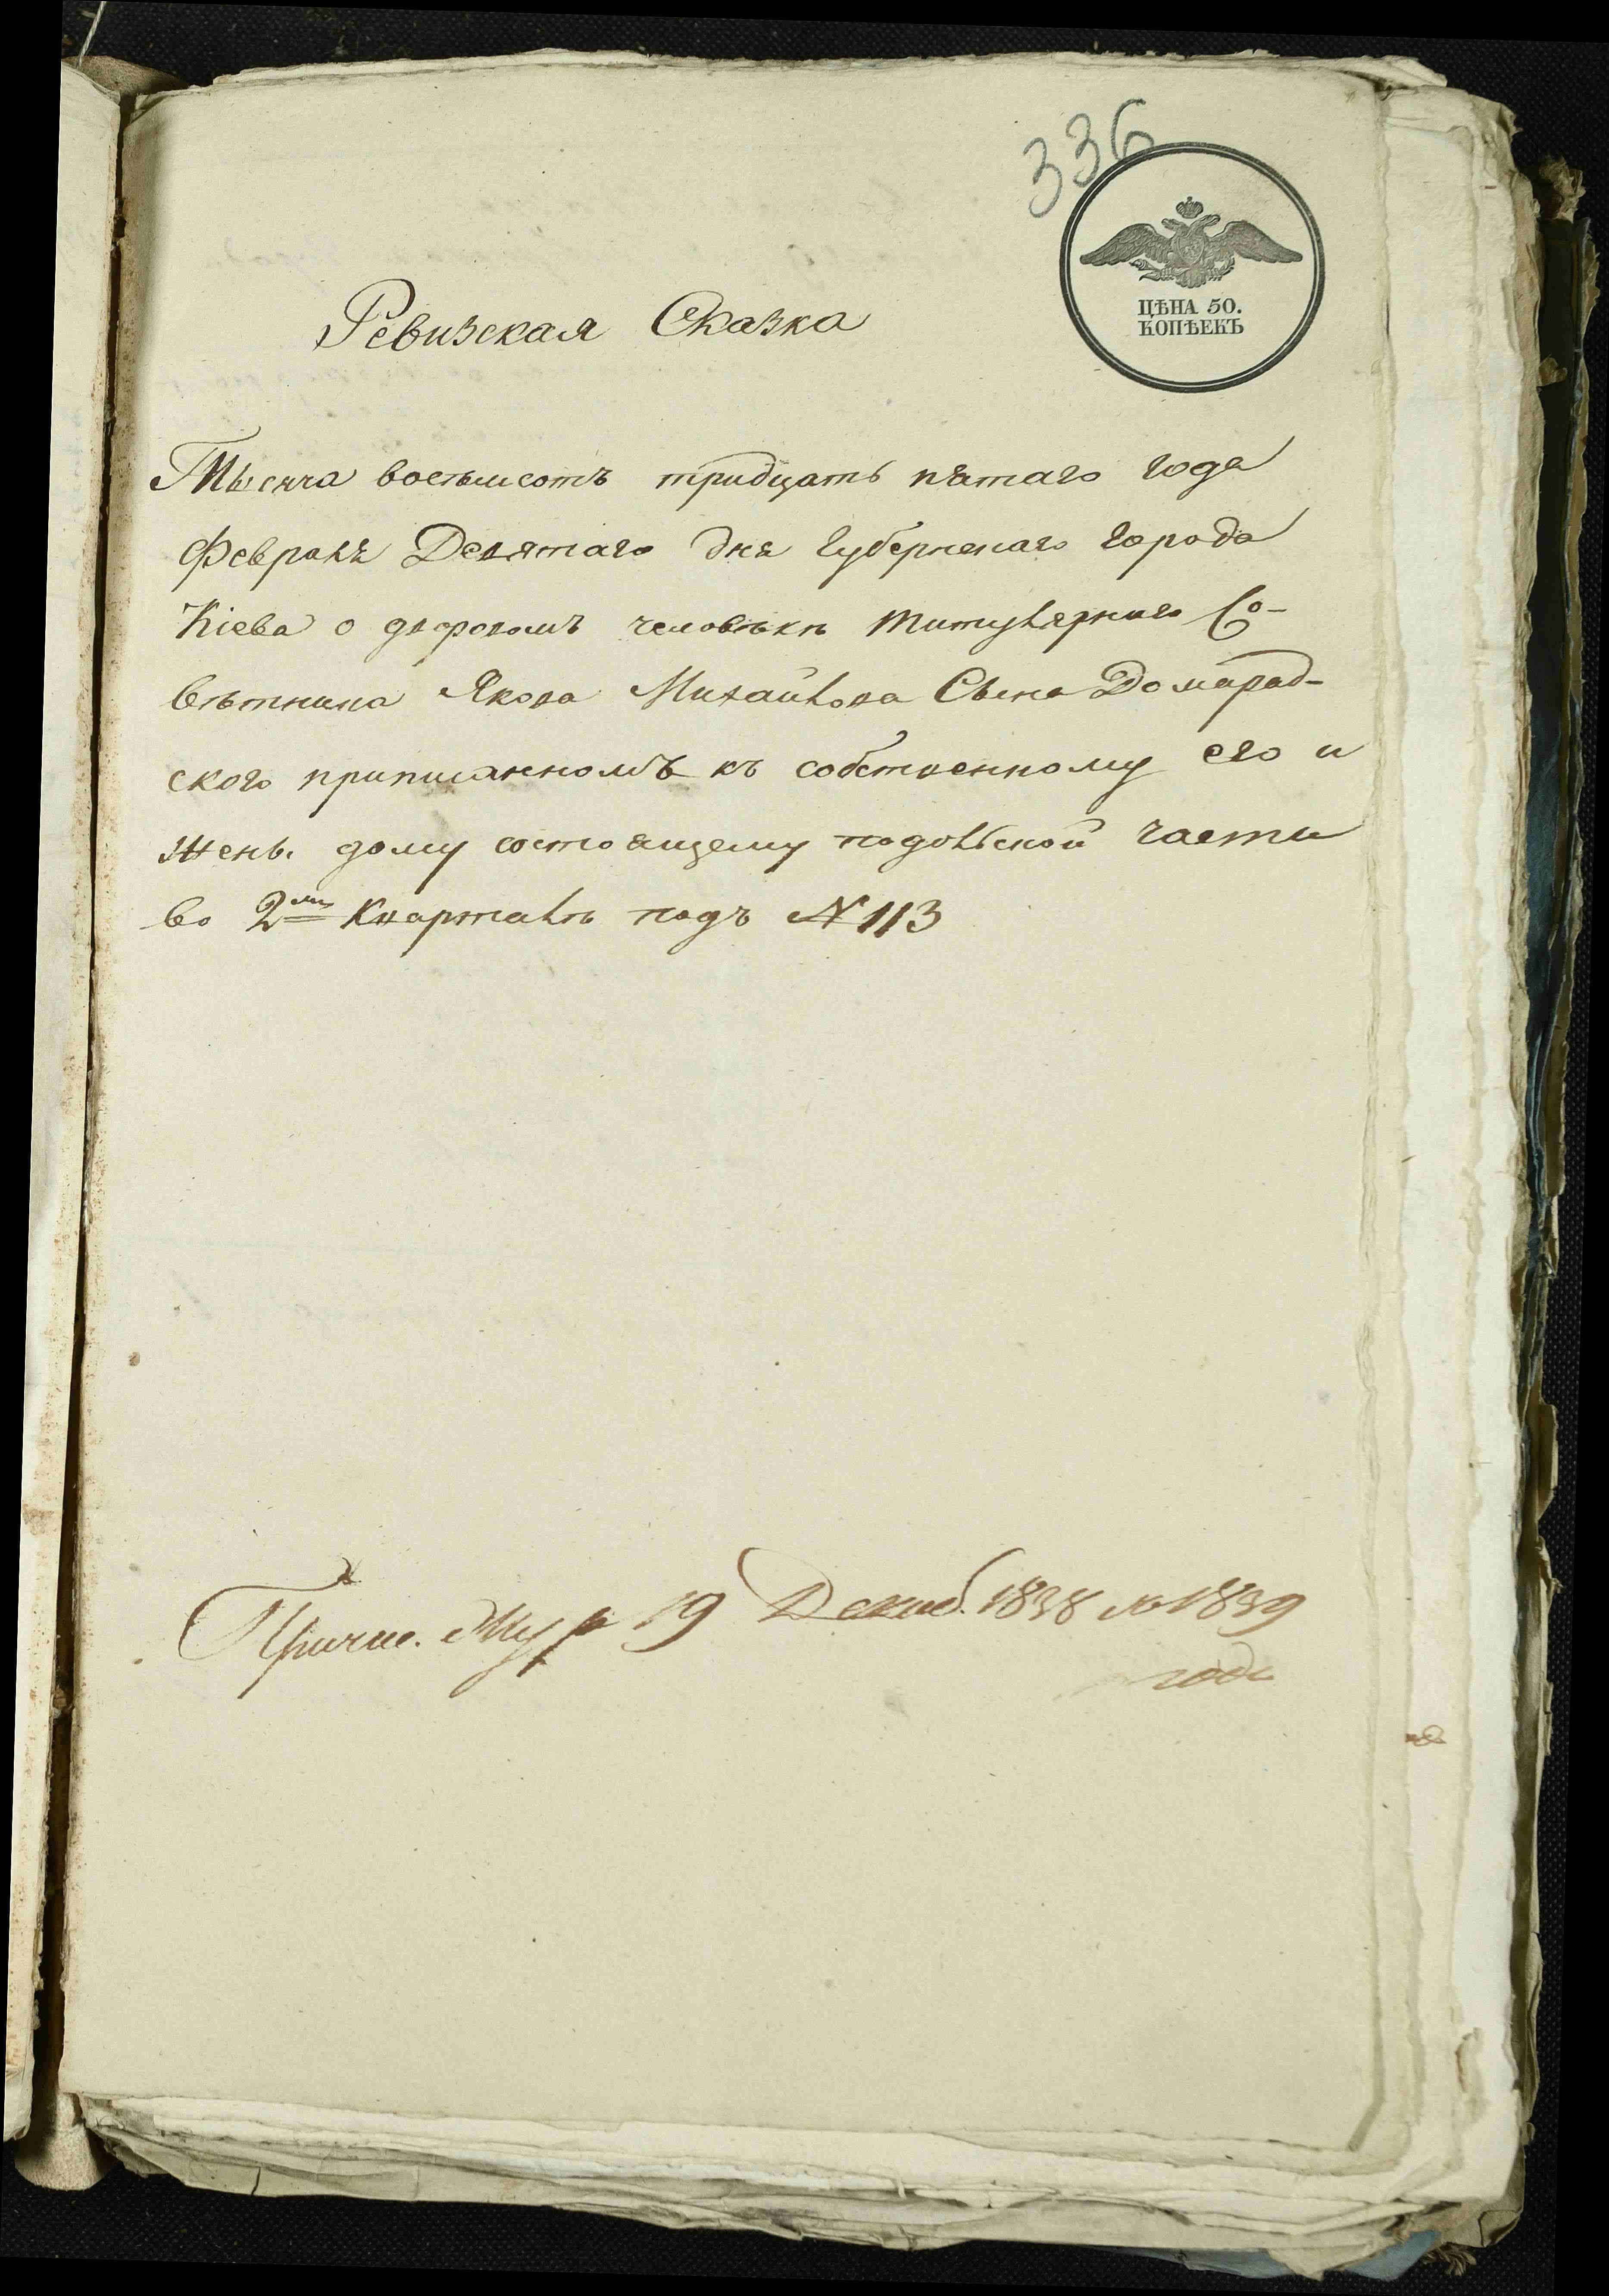 336
ЦѢНА 50.
КОПѢЕКЪ
Ревизская Сказка
Тысяча восемьсотъ тридцать пятаго года
Февраля Девятаго дня Губернскаго города
Кіева о дворовомъ человѣкѣ Титулярнаго Со-
вѣтника Якова Михайлова Сына Домарад-
ского приписанномъ къ собственному его и
жены дому состоящему подольской части
во 2мъ Кварталѣ подъ N 113
19 Декаб. 1838 1839
года